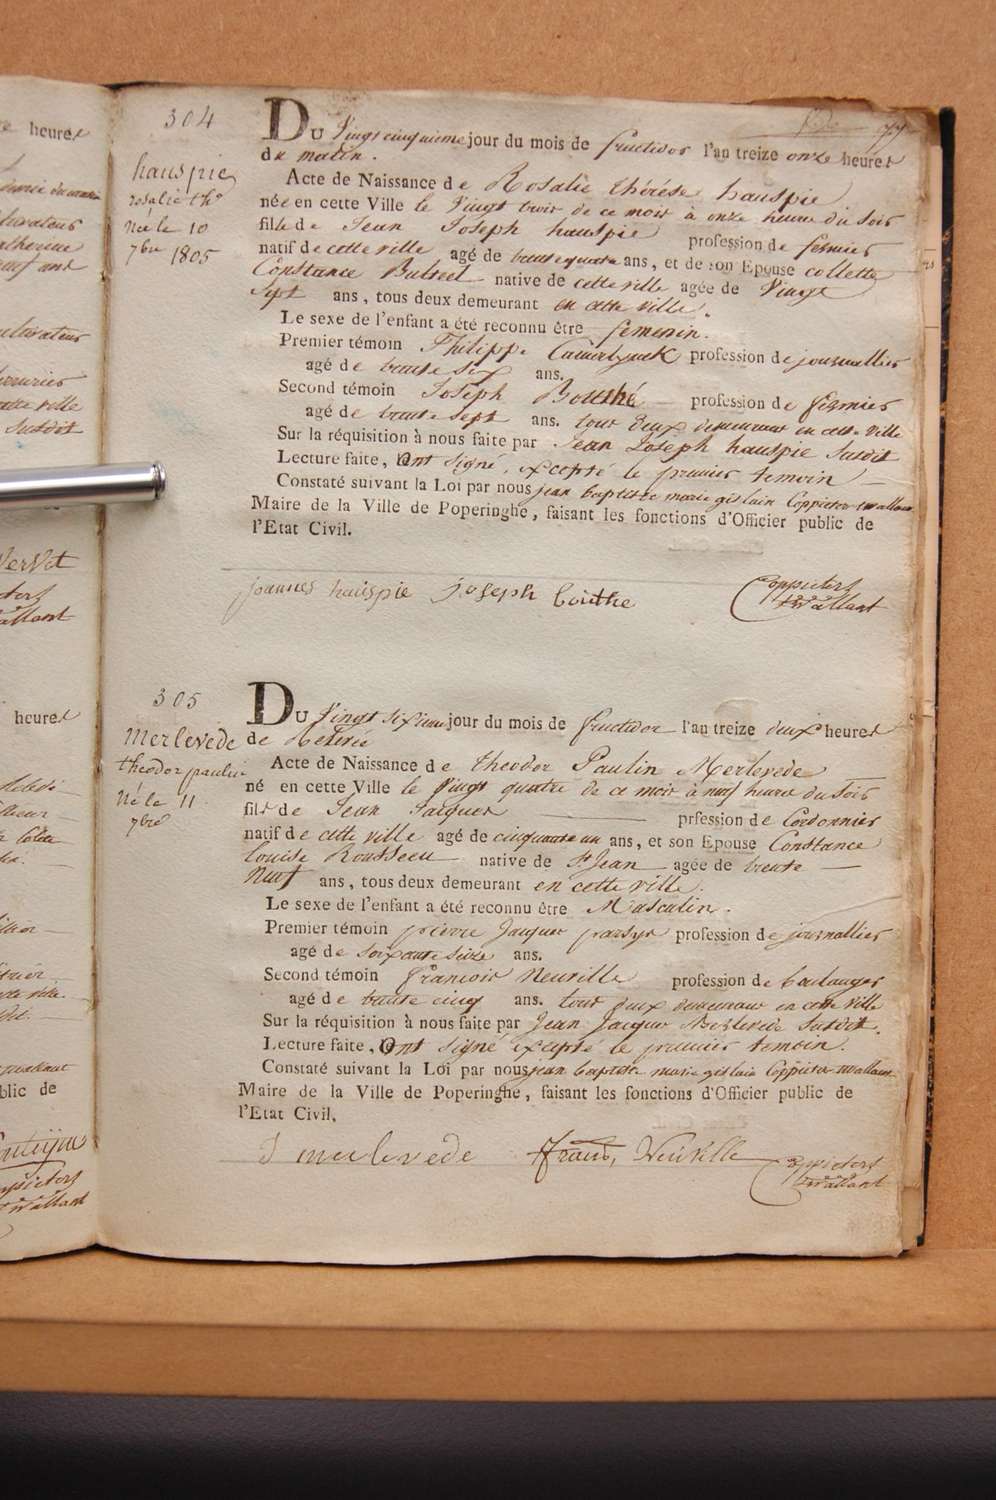 304
hauspie
rosalie th.e
née le 10
7bre 1805
Du Vingt cinquieme jour du mois de fructidor l'an treize onze heures
du matin.
Acte de Naissance de Rosalie thérése hauspie
née en cette Ville le Vingt trois de ce mois à onze heure du soir
fille de Jean Joseph hauspie profession de fermier
natif de cette ville agé de trente quatre ans, et de son Epouse collette
Constance Bulteel native de cette ville agée de Vingt
Sept ans, tous deux demeurant en cette ville.
Le sexe de l'enfant a été reconnu être femenin.
Premier témoin Philippe profession de journallier
agé de trente six ans.
Second témoin Joseph Bouthé profession de fermier
agé de trente sept ans. tous deux demeurant en cette ville
Sur la réquisition à nous faite par Jean Joseph hauspie Susdit
Lecture faite, Ont signé, excepté le premier temoin
Constaté suivant la Loi par nous jean baptiste marie gislain Coppieters twallant
Maire de la Ville de Poperinghe, faisant les fonctions d'Officier public de
l'Etat Civil.
joannes hauspie joseph bouthe Coppieters
twallant
305
merlevede
theodor paulin
né le 11
7bre
Du Vingt sixieme jour du mois de fructidor l'an treize deux heures
de Relevée
Acte de Naissance de theodor Paulin Merlevede
né en cette Ville le Vingt quatre de ce mois à neuf heures du soir
fils de Jean Jacques prfession de Cordonnier
natif de cette ville agé de cinquante un ans, et son Epouse Constance
Louise Rousseeu native de St Jean agée de trente
Neuf ans, tous deux demeurant en cette ville.
Le sexe de l'enfant a été reconnu être Masculin.
Premier témoin pierre Jacques parsyn profession de journallier
agé de soixante seize ans.
Second témoin francois Neuville profession de boulanger
agé de trente cinq ans. tous deux demeurant en cette ville
Sur la réquisition à nous faite par Jean Jacques Merlevede Susdit.
Lecture faite, Ont signé excepté le premier temoin.
Constaté suivant la Loi par nous jean baptiste marie gislain Coppieters twallant
Maire de la Ville de Poperinghe, faisant les fonctions d'Officier public de
l'Etat Civil.
J merlevede frans, Neuville Coppieters
twallant